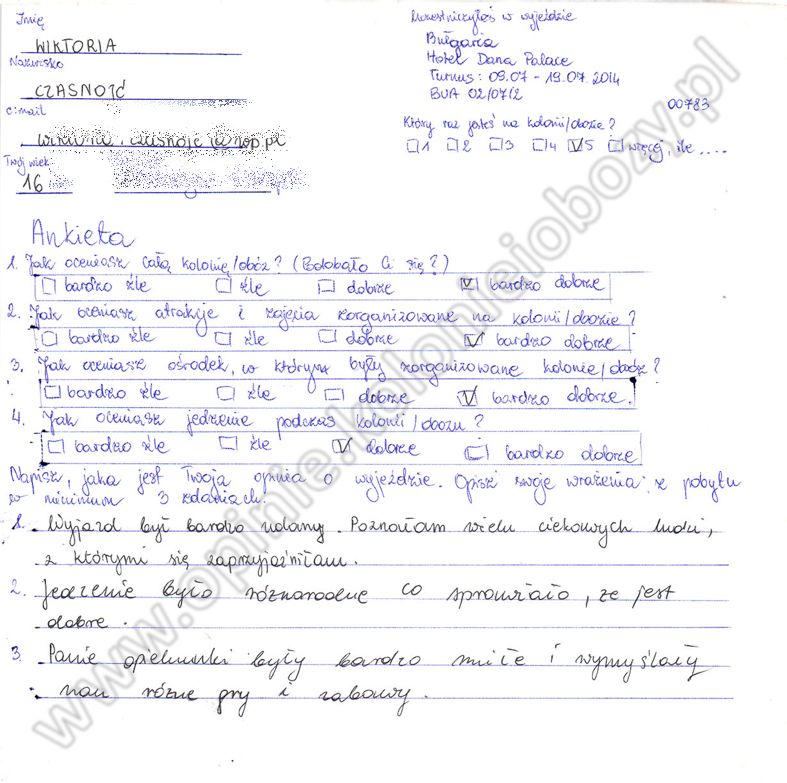 Imię
WIKTORIA
Nazwisko
CZASNOJĆ
e-mail
@wp.pl
Twój wiek:
16
Uczestniczyłeś w wyjeździe
Bułgaria
Hotel Dana Palace
Turnus: 09.07 - 19.07.2014
BUA 02/07/2
00783
Który raz jesteś na kolonii/obozie?
1 2 3 4 5 więcej, ile ....
Ankieta
1. Jak oceniasz całą kolonię/obóz? (Podobało Ci się?)
bardzo źle źle dobrze bardzo dobrze
2. Jak oceniasz atrakcje i zajęcia zorganizowane na kolonii/obozie?
bardzo źle źle dobrze bardzo dobrze
3. Jak oceniasz ośrodek, w którym były zorganizowane kolonie/obóz?
bardzo źle źle dobrze bardzo dobrze.
4. Jak oceniasz jedzenie podczas kolonii/obozu?
bardzo źle źle dobrze bardzo dobrze
Napisz, jaka jest Twoja opinia o wyjeździe. Opisz swoje wrażenia z pobytu
w minimum 3 zdaniach:
1. Wyjazd był bardzo udany. Poznałam wielu ciekawych ludzi,
z którymi się zaprzyjaźniłam.
2. Jedzenie było różnorodne co sprawiało, że jest
dobre.
3. Panie opiekunki były bardzo miłe i wymyślały
nam różne gry i zabawy.
www.opinie.kolonieiobozy.pl